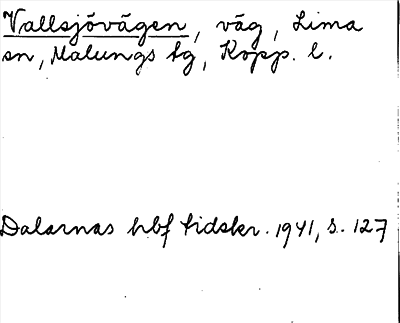 Vallsjövägen, väg, Lima
sn, Malungs tg, Kopp. l.
Dalarnas hbf tidskr. 1941, s. 127